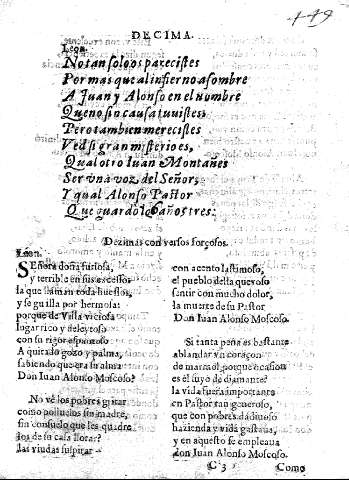 119
DECIMA.
Leon.
No tan solo os parecistes
Por mas que al infierno asombre
A Juan y Alonso en el nombre
Que no sin causa tuuistes;
Pero tambien merecistes
Ved si gran misterio es,
Qual otro Iuan Montañes
Ser vna voz del Señor,
Y qual Alonso Pastor
Que guardo los años tres.
Dezimas con versos forçosos.
Leon.
SEñora doña furiosa,
y terrible en sus excessos
la que llaman toda huessos,
y se guilla por hermosa:
porque de Villa viciosa
lugar rico y deleytoso
con su rigor espantoso
A quitado gozo y palma,
sabiendo que era su alma
Don Iuan Alonso Moscoso?
No vè los pobres gritar
como polluelos sin madre,
sin consuelo que les quadre
los de su casa llorar?
las viudas suspirar
con acento lastimoso,
el pueblo desta quexoso
santir con mucho dolor,
la muerte de su Pastor
Don Iuan Alonso Moscoso.
Si tanta pena es bastante
ablandar vn coraçon
de marmol, porque ocasion
es el suyo de diamante?
la vida fuera importante
en Pastor tan generoso,
que con pobres dadiuoso
hazienda y vida gastaua,
y en aquesto se empleaua
don Iuan Alonso Moscoso.
C 3
Como